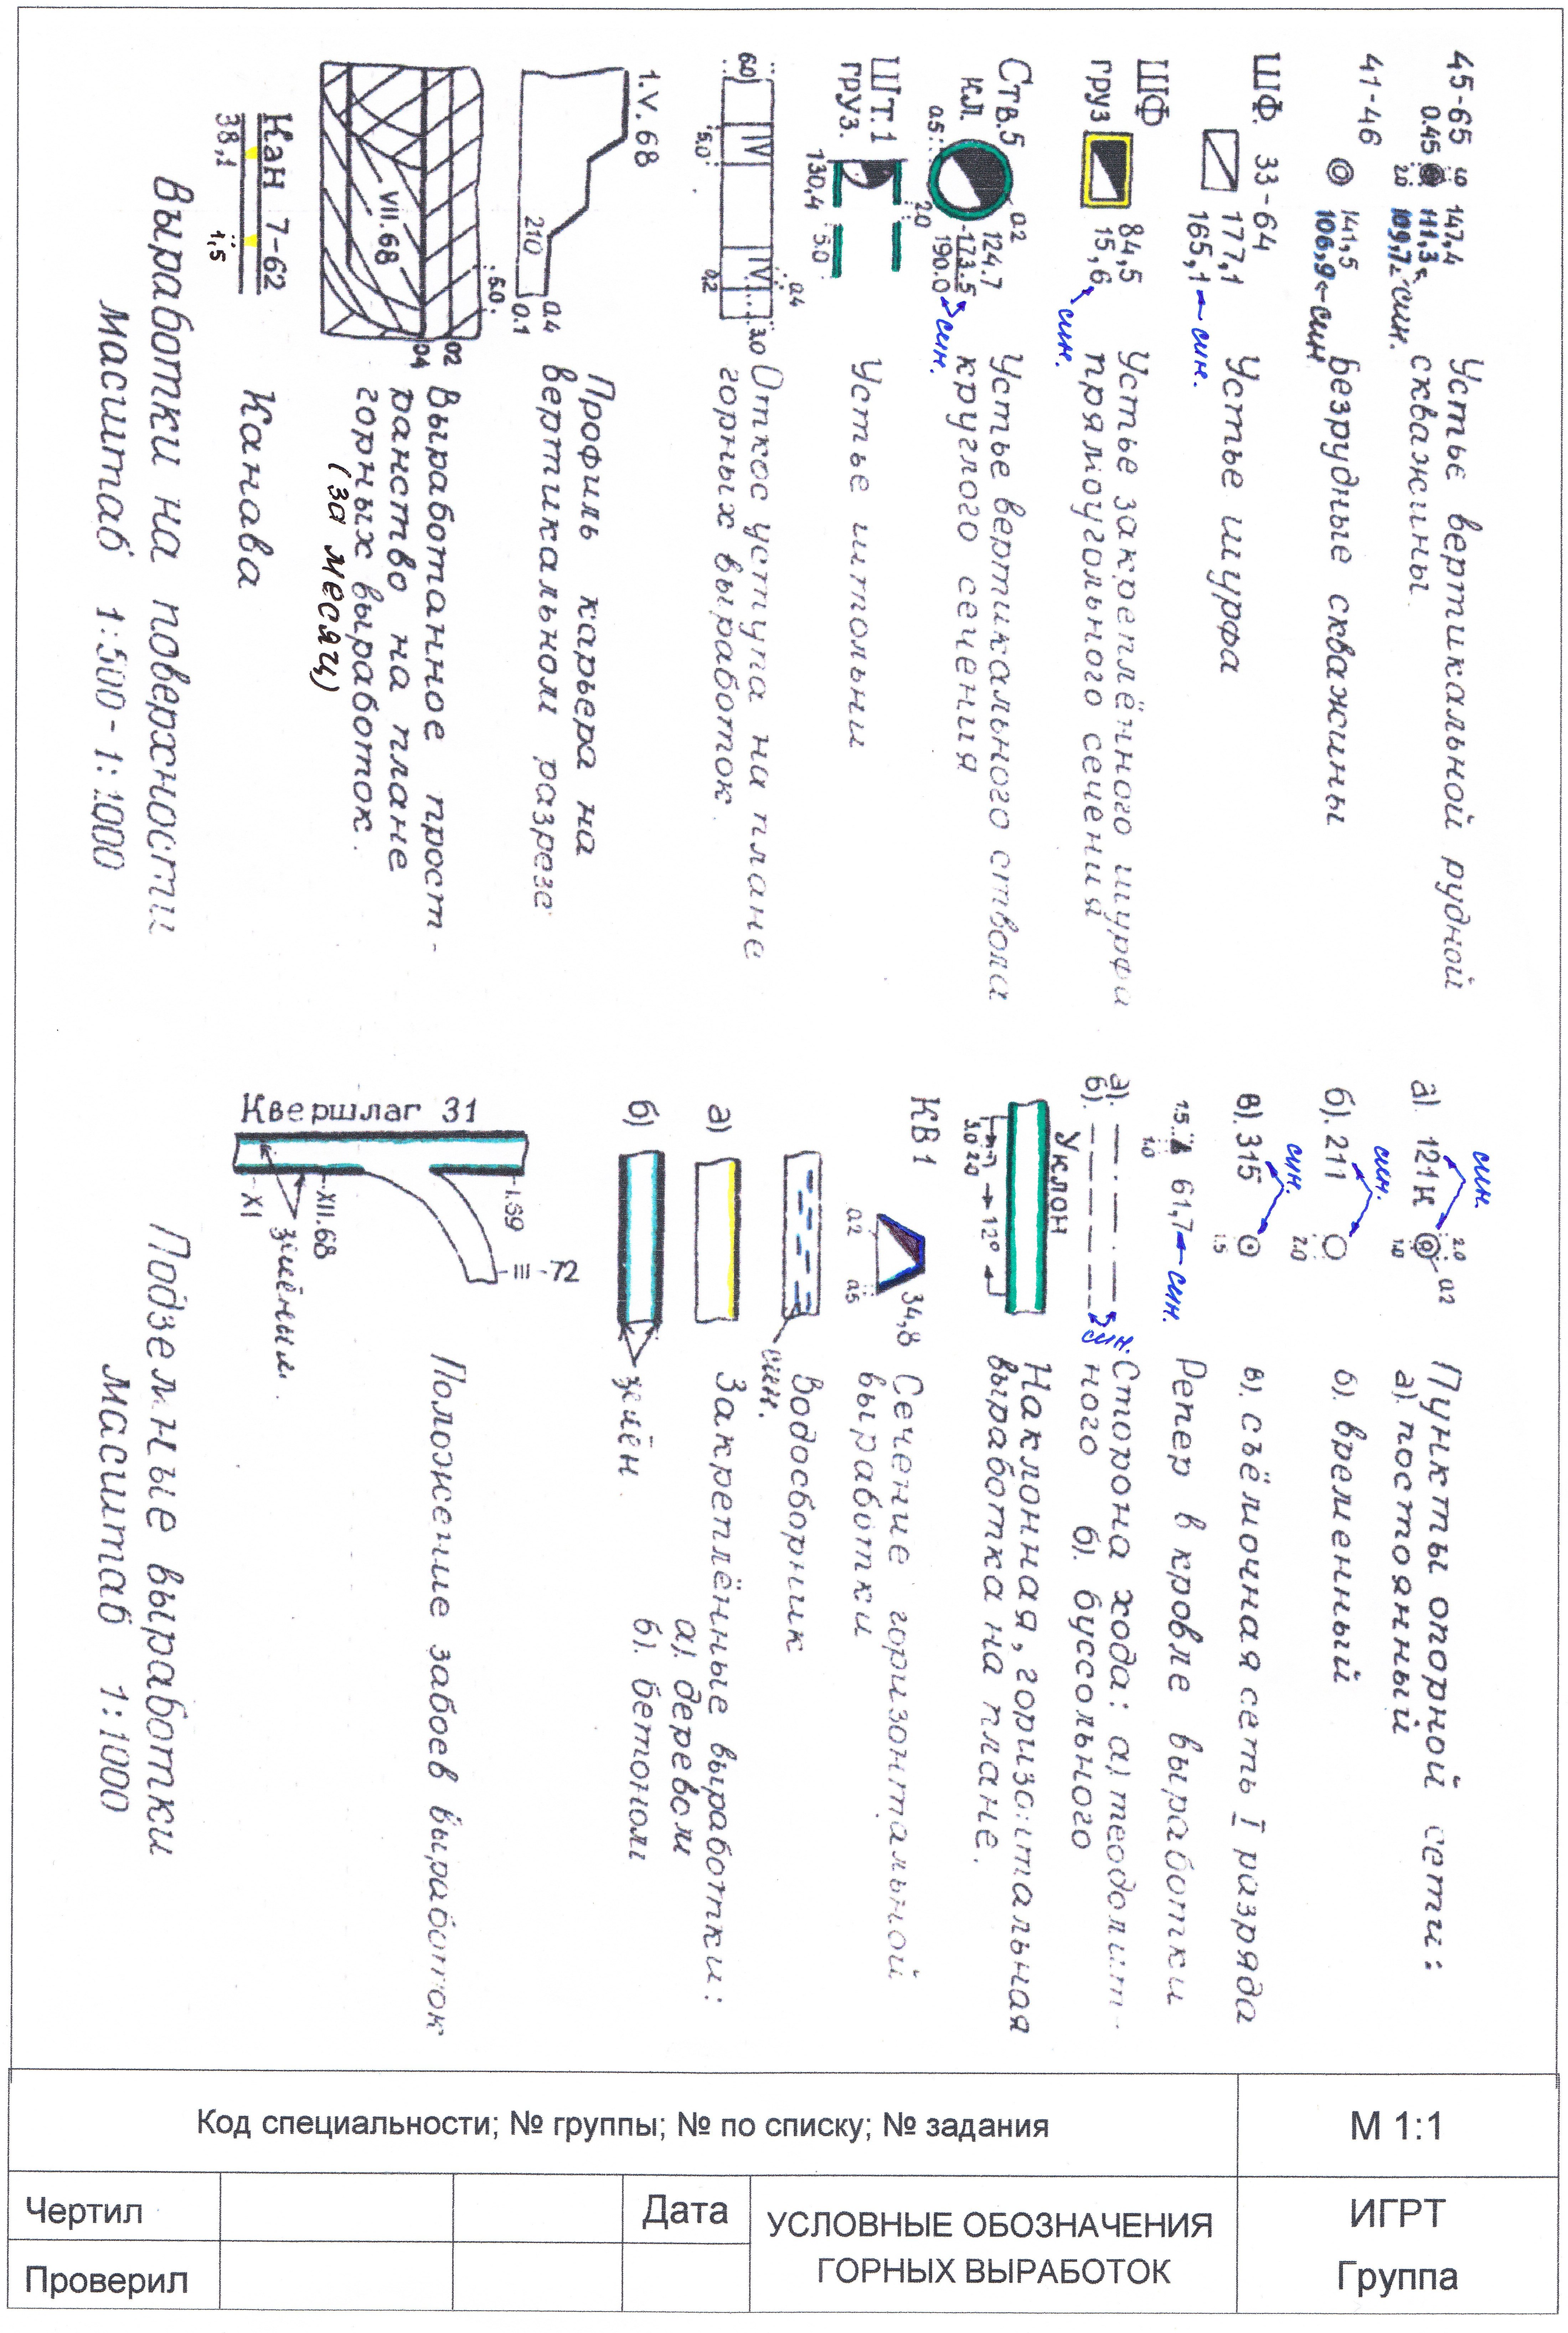 Выработки на поверхности
Масштаб 1:500-1:1000
45-65
1.0 147,4
0.45 111,3
2.0 109,7 син.
Устье вертикальной рудной
скважины
41-46
141,5
106,9 син
Безрудные скважины
ШФ. 33-64
177,1
165,1 син.
Устье шурфа
ШФ
груз
84,5
15,6
син.
Устье закреплённого шурфа
прямоугольного сечения
Ств.5
кл.
0.5
0.2
2.0
124.7
-173.5
190.0
син.
Устье вертикального ствола
круглого сечения
Шт.1
груз.
130,4
5.0
2.0
Устье штольни
6.0
5.0
IV
IV
0.2
0.4
3.0
Откос уступа на плане
горных выработок
1.V.68
210
0.4
0.1
Профиль карьера на
вертикальном разрезе
VII.68
5.0
02
04
Выработанное прост-
ранство на плане
горных выработок.
(за месяц)
Кан 7-62
38,1
1,5
Канава
Подземные выработки
Масштаб 1:1000
син.
а). 121н
2.0
1.0
0.2
Пункты опорной сети:
а). постоянный
син.
б). 211
2.0
б). временный
син.
в). 315
1.5
в). съёмочная сеть I разряда
1.5
1.0
61,7 син.
Репер в кровле выработки
а).
б).
син.
Сторона хода: а) теодолит-
ного б). буссольного
Уклон
3.0 2.0
12°
Наклонная, горизонтальная
выработка на плане.
КВ1
34,8
0.2
0.5
Сечение горизонтальной
выработки
син.
Водосборник
а)
б)
зелён
Закреплённые выработки:
а). деревом
б). бетоном
Квершлаг 31
XI
XII.68
1.69
III-72
зелёным.
Положение забоев выработок
Код специальности; № группы; № по списку; № задания
М 1:1
Чертил
Дата
Проверил
УСЛОВНЫЕ ОБОЗНАЧЕНИЯ
ГОРНЫХ ВЫРАБОТОК
ИГРТ
Группа